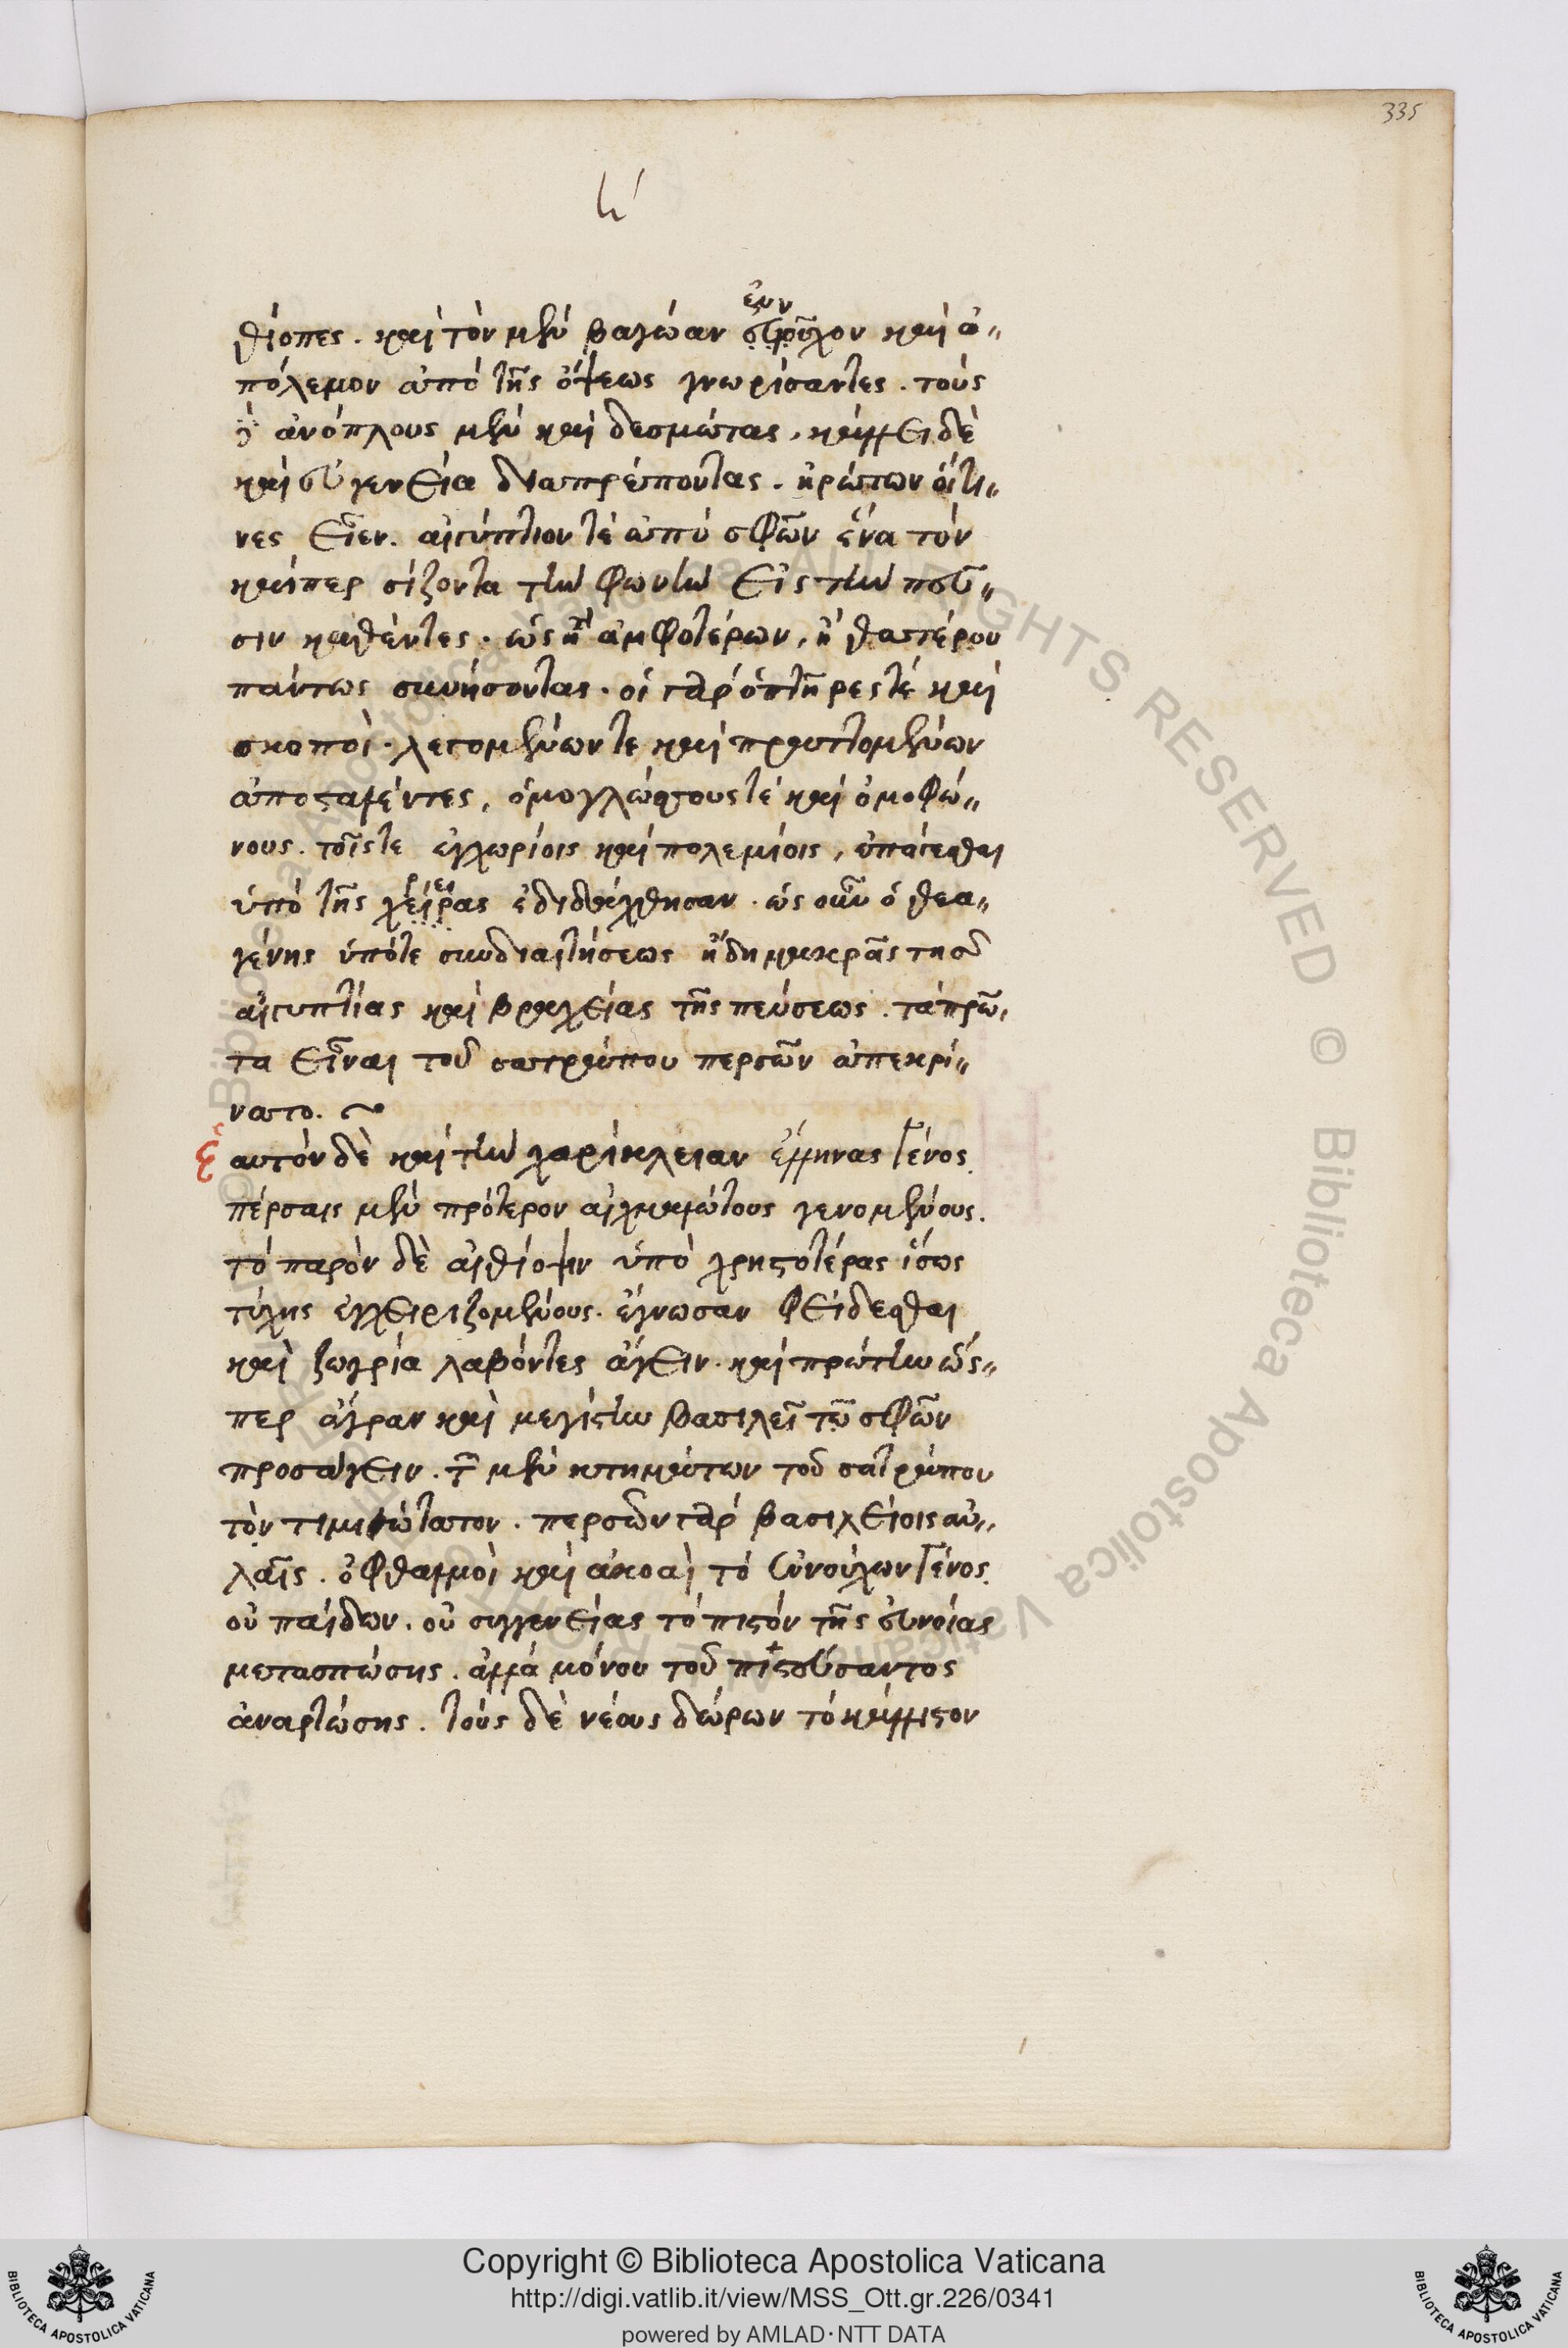 335
η′
θίοπες. καὶ τὸν μὲν βαγώαν στροῦχον καὶ ἀ-
εὐν
πόλεμον ἀπὸ τῆς ὄψεως γνωρίσαντες. τοὺς
δ' ἀνόπλους μὲν καὶ δεσμώτας, κάλλει δὲ
καὶ εὐγενεία διαπρέποντας. ἠρώτων οἵτι-
νες εἶεν. αἰγύπτιον τὲ ἀπὸ σφῶν ἕνα τὸν
καίπερ σίζοντα τὴν φωνὴν εἰς τὴν πεῦ-
σιν καθέντες. ὡς ἢ ἀμφοτέρων, ἢ θατέρου
πάντως συνήσοντας. οἱ γὰρ ὀπτῆρες τὲ καὶ
σκοποὶ. λεγομένων τε καὶ πραττομένων
ἀποσταλέντες, ὁμογλώττους τὲ καὶ ὁμοφώ-
νους. τοῖς τε ἐγχωρίοις καὶ πολεμίοις, ἐπάγεσθαι
ὑπὸ τῆς χείρας ἐδιδάχθησαν. ὡς οὖν ὁ θεα-
ρει
γένης ὑπό τε συνδιαιτήσεως ἤδη μακρᾶς τῆς
αἰγυπτίας καὶ βραχείας τῆς πεύσεως. τὰ πρῶ-
τα εἶναι τοῦ σατράπου περσῶν ἀπεκρί-
νατο.
ἑ αυτὸν δὲ καὶ τὴν χαρίκλειαν ἕλληνας γένος.
πέρσαις μὲν πρότερον αἰχμαλώτους γενομένους.
τὸ παρὸν δὲ αἰθίοψιν ὑπὸ χρηστοτέρας ἴσως
τύχης ἐγχειριζομένους. ἔγνωσαν φείδεσθαι
καὶ ζωγρία λαβόντες ἄγειν. καὶ πρώτην ὥς-
περ ἄγραν καὶ μεγίστην βασιλεῖ τῶ σφῶν
προσάγειν. τῶν μὲν κτημάτων τοῦ σατράπου
τὸν τιμιώτατον. περσῶν γὰρ βασιλείοις αὐ-
λαῖς. ὀφθαλμοὶ καὶ ἀκοαὶ τὸ εὐνούχων γένος.
οὐ παίδων. οὐ συγγενείας τὸ πιστὸν τῆς εὐνοίας
μετασπώσης. ἀλλὰ μόνου τοῦ πιστεύσαντος
ἀναρτώσης. τοὺς δὲ νέους δώρων τὸ κάλλιστον
Copyright © Biblioteca Apostolica Vaticana
http://digi.vatlib.it/view/MSS_Ott.gr.226/0341
powered by AMLAD·NTT DATA